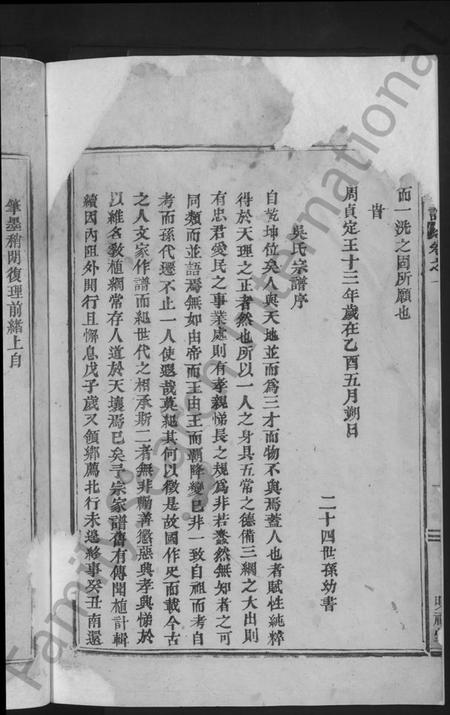 譜 卷之一
而一洗之固所願也
旹
周貞定王十三年歲在乙酉五月朔日
二十四世孫幼書
吳氏宗譜序
自乾坤位矣人與天地並而為三才而物不與焉蓋人也者賦性純粹
得於天理之正者然也所以一人之身具五常之德備三綱之大出則
有忠君愛民之事業處則有孝親悌長之規為非若蠢然無知者之可
同類而並語焉無如由帝而王由王而覇降變已非一致自祖而考自
考而孫代遷不止一人使遐哉莫紀其何以徵是故國作史而載今古
之人文家作譜而紀世代之相承斯二者無非勸善懲惡興孝興悌於
以維名敎植綱常存人道於天壤焉已矣予宗家譜舊有傳聞植計輯
續因內阻外閑行且懈息戊子歲又領鄉薦北行未遑移事癸丑南還
筆墨稍閑復理前緒上自
FamilySearch International